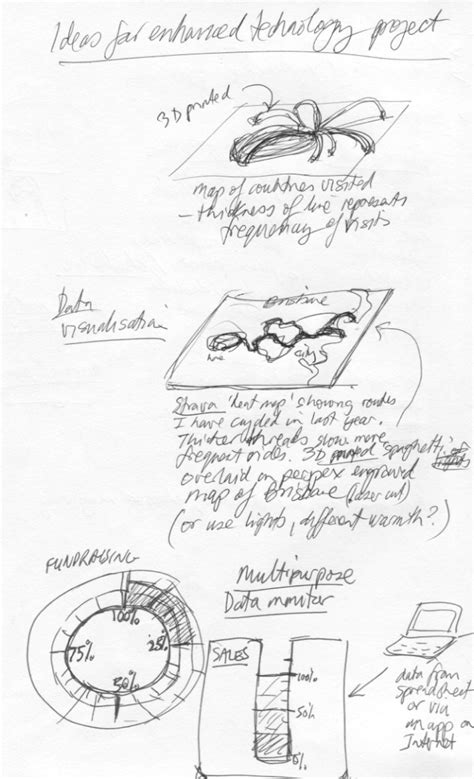 Ideas for enhanced technology project
3D printed
map of countries visited
- thickness of line represents
frequency of visits
Data
visualisation
Brisbane
city
Strava 'heat map' showing routes
I have cycled in last year.
Thicker threads show more
frequent rides. 3D printed 'spaghetti'
overlaid on perspex engraved
map of Brisbane (laser cut)
(or use lights, different warmth?)
FUNDRAISING
100%
25%
50%
75%
Multipurpose
Data monitor
SALES
100%
50%
0%
data from
spreadsheet
or via
an app on
Internet